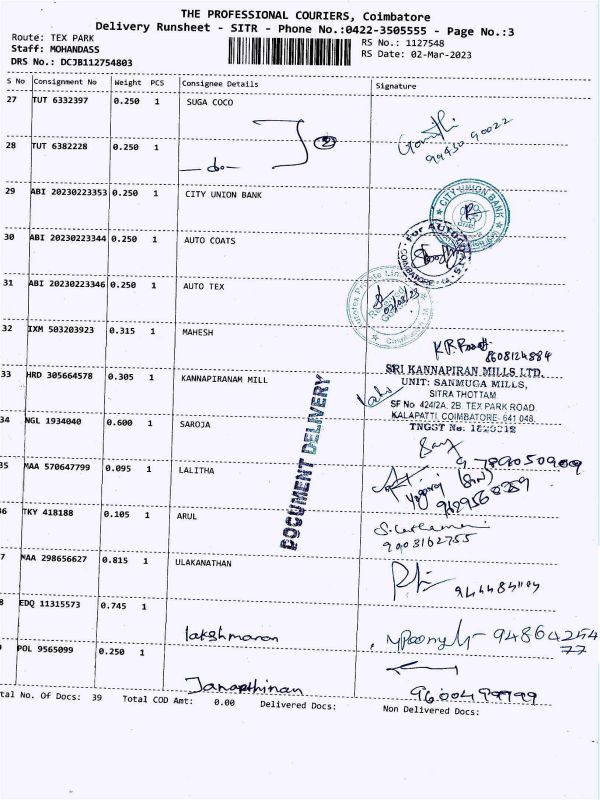 THE PROFESSIONAL COURIERS, Coimbatore
Delivery Runsheet - SITR - Phone No.:0422-3505555 - Page No.:3
Route: TEX PARK
Staff: MOHANDASS
DRS No.: DCJB112754803
RS No.: 1127548
RS Date: 02-Mar-2023
S No Consignment No Weight PCS Consignee Details Signature
27 TUT 6332397 0.250 1 SUGA COCO
28 TUT 6382228 0.250 1 -do- 2
29 ABI 20230223353 0.250 1 CITY UNION BANK
CITY UNION BANK
30 ABI 20230223344 0.250 1 AUTO COATS
For AUTO COATS
COIMBATORE
31 ABI 20230223346 0.250 1 AUTO TEX
32 IXM 503203923 0.315 1 MAHESH
8608124884
33 HRD 305664578 0.305 1 KANNAPIRANAM MILL
SRI KANNAPIRAN MILLS LTD.
UNIT: SANMUGA MILLS,
SITRA THOTTAM
SF No. 424/2A, 2B. TEX PARK ROAD
KALAPATTI, COIMBATORE- 641 048.
TNGST No:
DOCUMENT DELIVERY
34 NGL 1934040 0.600 1 SAROJA
35 MAA 570647799 0.095 1 LALITHA
36 TKY 418188 0.105 1 ARUL
9003162755
7 MAA 298656627 0.815 1 ULAKANATHAN
8 EDQ 11315573 0.745 1 lakshmanan
9486425477
9 POL 9565099 0.250 1 Janapthinan
9600499999
tal No. Of Docs: 39 Total COD Amt: 0.00 Delivered Docs: Non Delivered Docs: